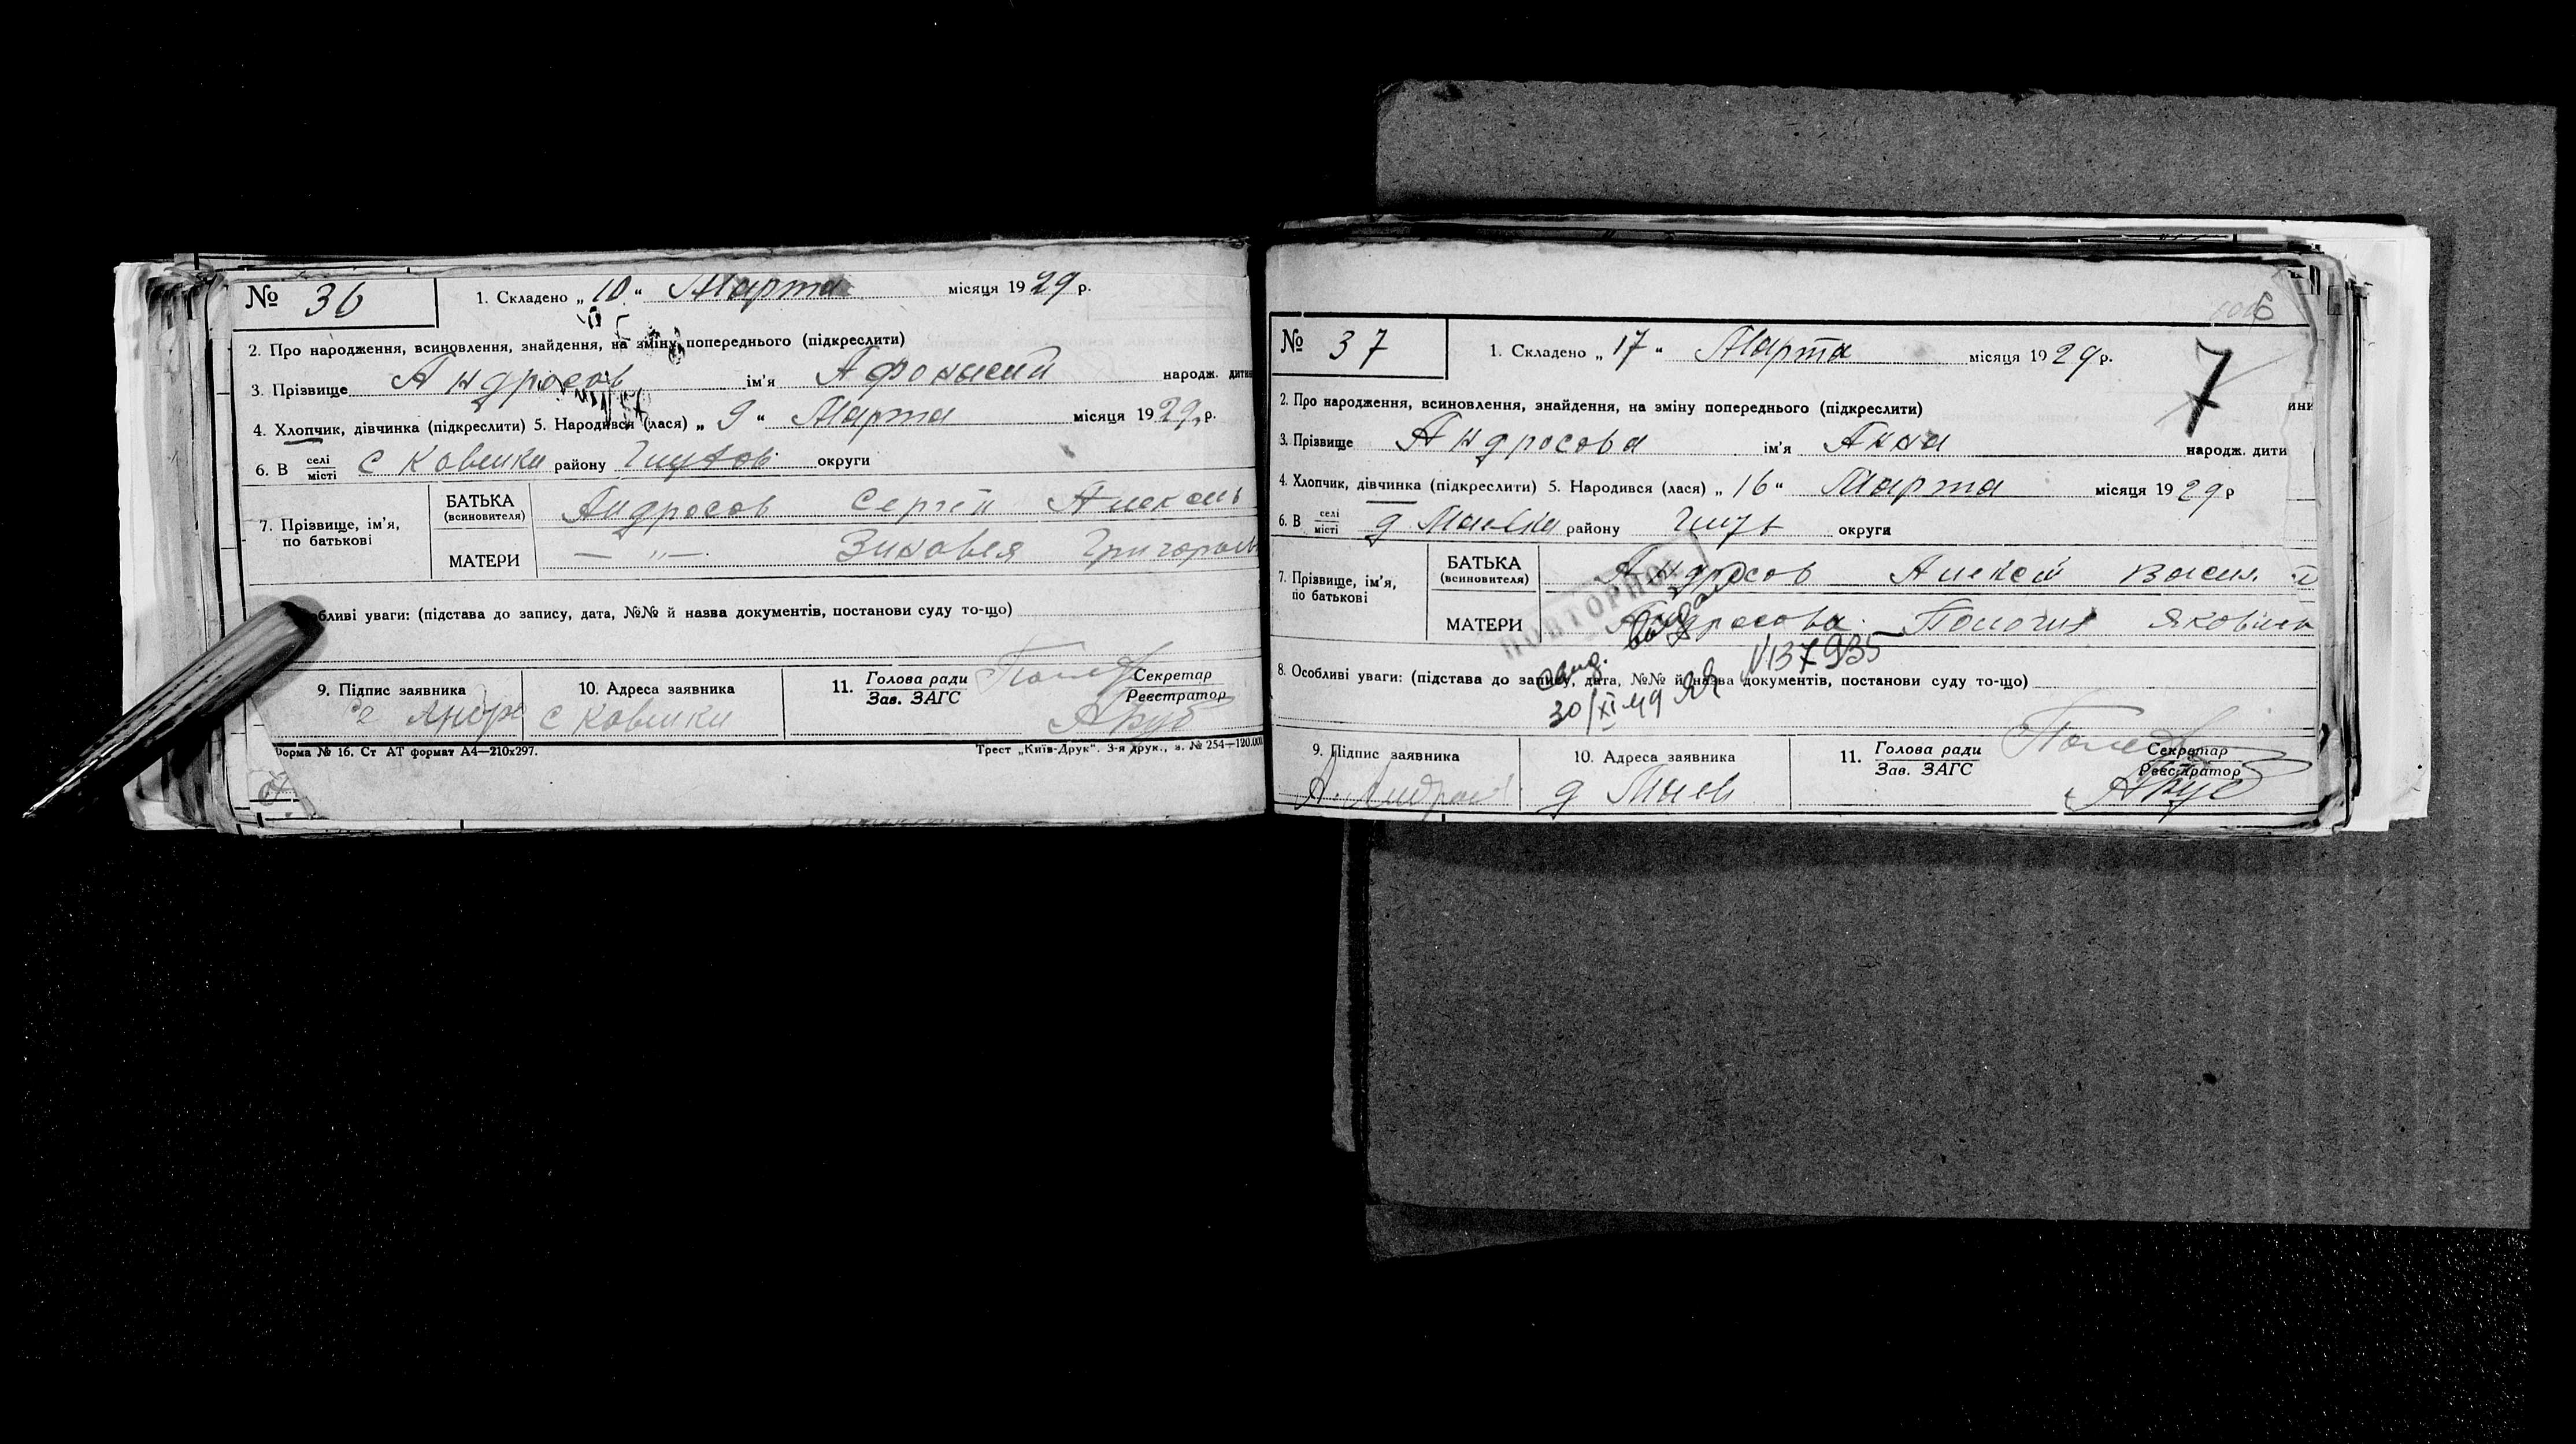 № 36
1. Складено „ 10 “ Марта місяця 1929 р.
2. Про народження, всиновлення, знайдення, на зміну попереднього (підкреслити)
3. Прізвище Андросов ім'я Афонасий народж. дитин
4. Хлопчик, дівчинка (підкреслити) 5. Народився (лася) „ 9 “ Марта місяця 1929 р.
6. В селі місті с району Глухов округи
7. Прізвище, ім'я, по батькові
БАТЬКА (всиновителя) Андросов Сергей
МАТЕРИ — „ — Зиновея
бливі уваги: (підстава до запису, дата, №№ й назва документів, постанови суду то-що)
9. Підпис заявника
10. Адреса заявника с
11. Голова ради Зав. ЗАГС
Секретар Реєстратор
Форма № 16. Ст АТ формат А4—210х297.
Трест „Київ-Друк“. 3-я друк., з. № 254—120.000
6
№ 37
1. Складено „ 17 “ Марта місяця 1929 р.
7
2. Про народження, всиновлення, знайдення, на зміну попереднього (підкреслити)
3. Прізвище Андросова ім'я Анна народж. дити
4. Хлопчик, дівчинка (підкреслити) 5. Народився (лася) „ 16 “ Марта місяця 1929 р
6. В селі місті д району округи
7. Прізвище, ім'я, по батькові
БАТЬКА (всиновителя) Андросов Алексей Васил
МАТЕРИ Андросова Яковлев
ПОВТОРНОЕ
выдано
свид. № 137935
30/XI-49
8. Особливі уваги: (підстава до запису, дата, №№ й назва документів, постанови суду то-що)
9. Підпис заявника А. Андрос
10. Адреса заявника д
11. Голова ради Зав. ЗАГС
Секретар Реєстратор